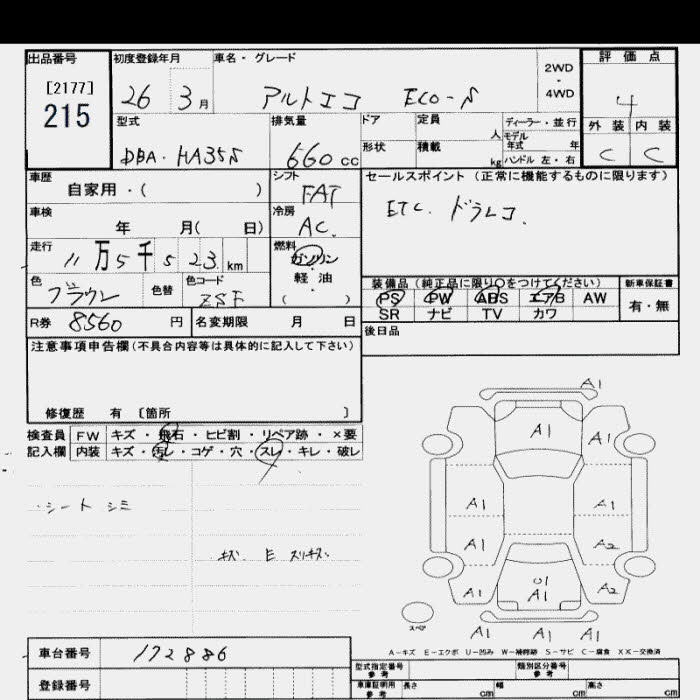 出品番号 初度登録年月 車名・グレード 2WD・4WD 評価点
[2177]
215
26 3月 アルトエコ ECO-S 4
型式 排気量 ドア 定員 人 ディーラー・並行 外装 内装
DBA・HA35S 660cc 形状 積載 kg モデル年式 年 C C
ハンドル 左・右
車歴 自家用・( ) シフト FAT セールスポイント (正常に機能するものに限ります)
車検 年 月( 日) 冷房 AC. ETC. ドラレコ.
走行 11万5千523km 燃料 ガソリン・軽油 ( )
色 ブラウン 色替 色コード ZSF 装備品 (純正品に限り○をつけてください) 新車保証書
PS PW ABS エアB AW 有・無
R券 8560円 名変期限 月 日 SR ナビ TV カワ
後日品
注意事項申告欄(不具合内容等は具体的に記入して下さい)
修復歴 有 [箇所 ]
検査員 FW キズ・飛石・ヒビ割・リペア跡・×要
記入欄 内装 キズ・汚レ・コゲ・穴・スレ・キレ・破レ
・シート シミ
キズ. E スリキズ.
A1
A1 A1
A1 A1
A1 A2
A1 U1 A1 A2
スペア A1 A1 A1
A-キズ E-エクボ U-凹み W-補修跡 S-サビ C-腐食 XX-交換済
車台番号 172886
型式指定番号 参考 類別区分番号 参考
登録番号 車庫証明用 参考 長さ cm 幅 cm 高さ cm